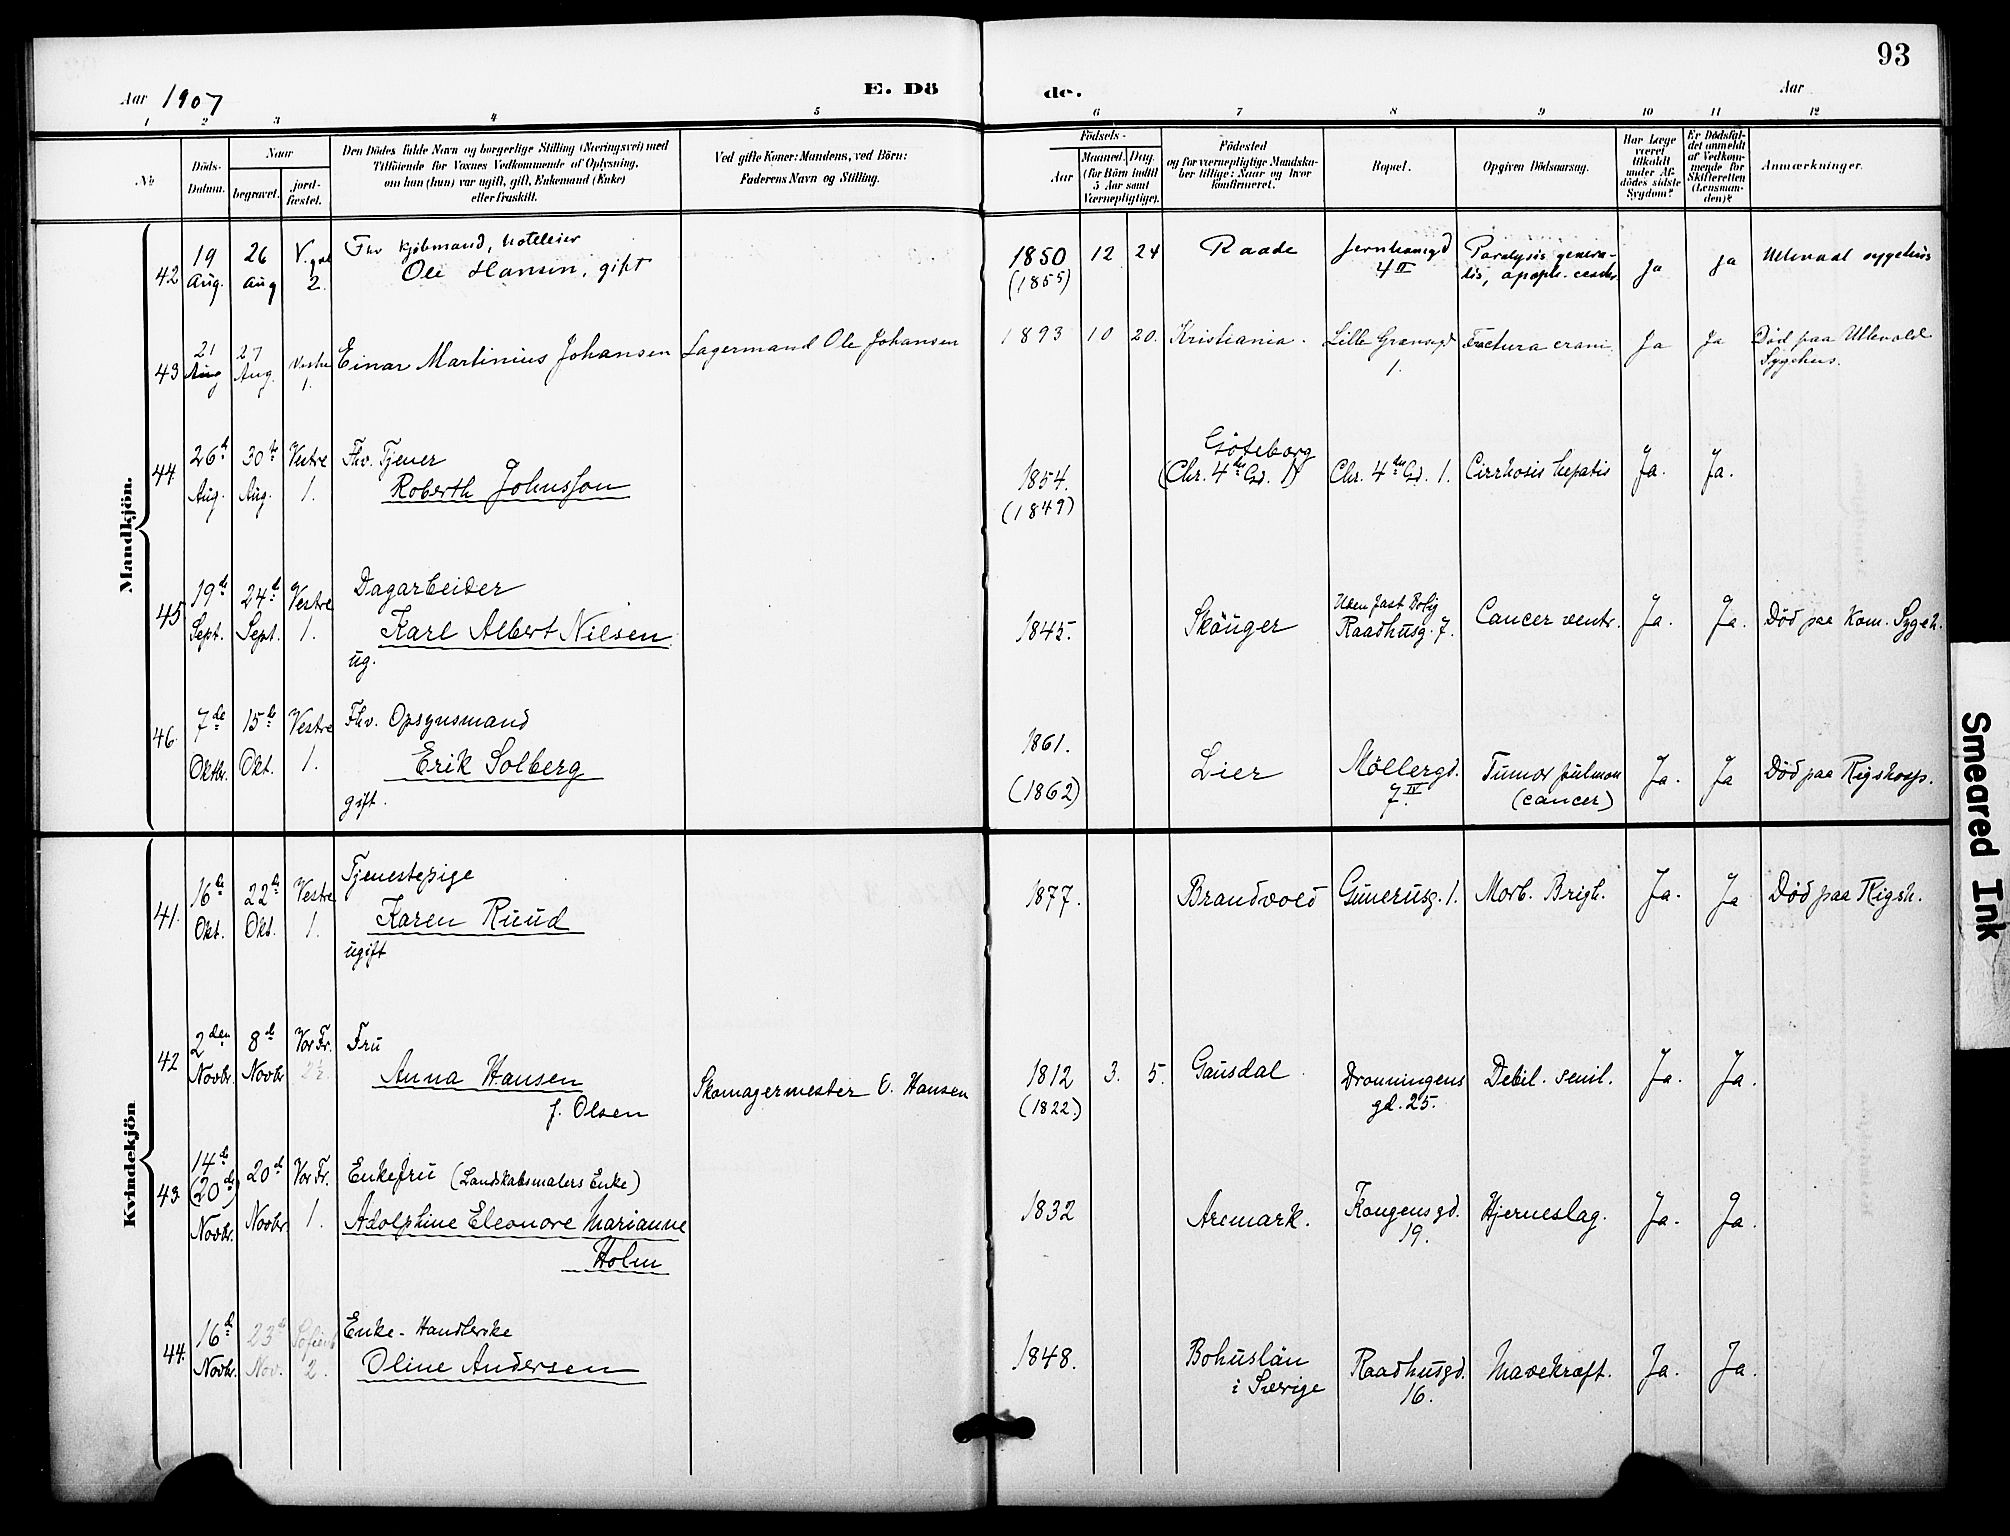 93
Aar 1907
E. Dö
de.
Aar
1 2 3 4 5 6 7 8 9 10 11 12
No
Döds-Datum.
Naar
begravet.
jord-fæstet.
Den Dödes fulde Navn og borgerlige Stilling (Næringsvei) med
Tilföiende for Voxnes Vedkommende af Oplysning,
om han (hun) var ugift, gift, Enkemand (Enke)
eller fraskilt.
Ved gifte Koner: Mandens, ved Börn:
Faderens Navn og Stilling.
Födsels-
Aar
Maaned. Dag.
(for Börn indtil
5 Aar samt
Værnepligtige).
Födested
og for værnepligtige Mandska-
ber tillige: Naar og hvor
konfirmeret.
Bopæl.
Opgiven Dödsaarsag.
Har Læge
været
tilkaldt
under Af-
dödes sidste
Sygdom?
Er Dödsfal-
det anmeldt
af Vedkom-
mende for
Skifteretten
(Lensman-
den)?
Anmærkninger.
Mandkjön.
42 19 Aug. 26 Aug V. gal 2.
Fhv kjöbmand, hoteleier
Ole Hansen, gift
1850 (1855) 12 24 Raade Jernbanegd 4 II
Paralysis genera-
lis, apopl. cerebr.
Ja Ja Ullevaal sygehus
43 21 Aug 27 Aug. Vestre 1.
Einar Martinius Johansen Lagermand Ole Johansen
1893 10 20. Kristiania. Lille Grænsegd 1. Fractura cranii Ja Ja
Död paa Ullevold
Sygehus.
44 26d Aug. 30te Aug. Vestre 1.
Fhv. Tjener
Roberth Johnsson
1854. (1849)
Göteborg
(Chr. 4des Gd. 1) Chr. 4des Gd. 1. Cirrhosis hepatis Ja. Ja.
45 19de Sept. 24d Sept. Vestre 1.
Dagarbeider
Karl Albert Nilsen
ug.
1845. Skouger
Uden fast Bolig
Raadhusg. 7. Cancer ventr. Ja. Ja. Död paa Kom. Sygeh.
46. 7de Oktbr. 15de Okt. Vestre 1.
Fhv. Opsynsmand
Erik Solberg
gift.
1861. (1862) Lier Möllergd. 7 IV.
Tumor pulmon
(cancer)
Ja. Ja Död paa Rigshosp.
Kvindekjön
41. 16de Okt. 22de Okt. Vestre 1.
Tjenestepige
Karen Ruud
ugift
1877. Brandvold Gunerusg. 1. Morb. Brigh. Ja. Ja Död paa Rigsh.
42 2den Novbr. 8d Novbr Vor Fr. 2½.
Fru
Anna Hansen
f. Olsen
Skomagermester E. Hansen
1812 (1822.) 3. 5. Gausdal.
Dronningens
gd. 25. Debil. senil. Ja. Ja.
43. 14d (20de) Novbr. 20d Novbr Vor Fr. 1.
Enkefru (Landskabsmalers Enke)
Adolphine Eleonore Marianne
Holm
1832 Aremark. Kongensgd. 19. Hjerneslag. Ja. Ja.
44. 16d Novbr. 23d Nov. 2.
Enke - Handlerske
Oline Andersen
1848.
Bohuslän
i Sverige
Raadhusgd. 16. Mavekræft. Ja. Ja.
Smeared Ink